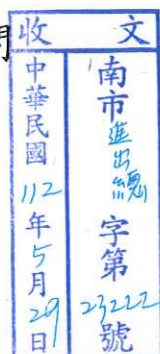 收文
南市進出總字第23222號
中華民國112年5月29日